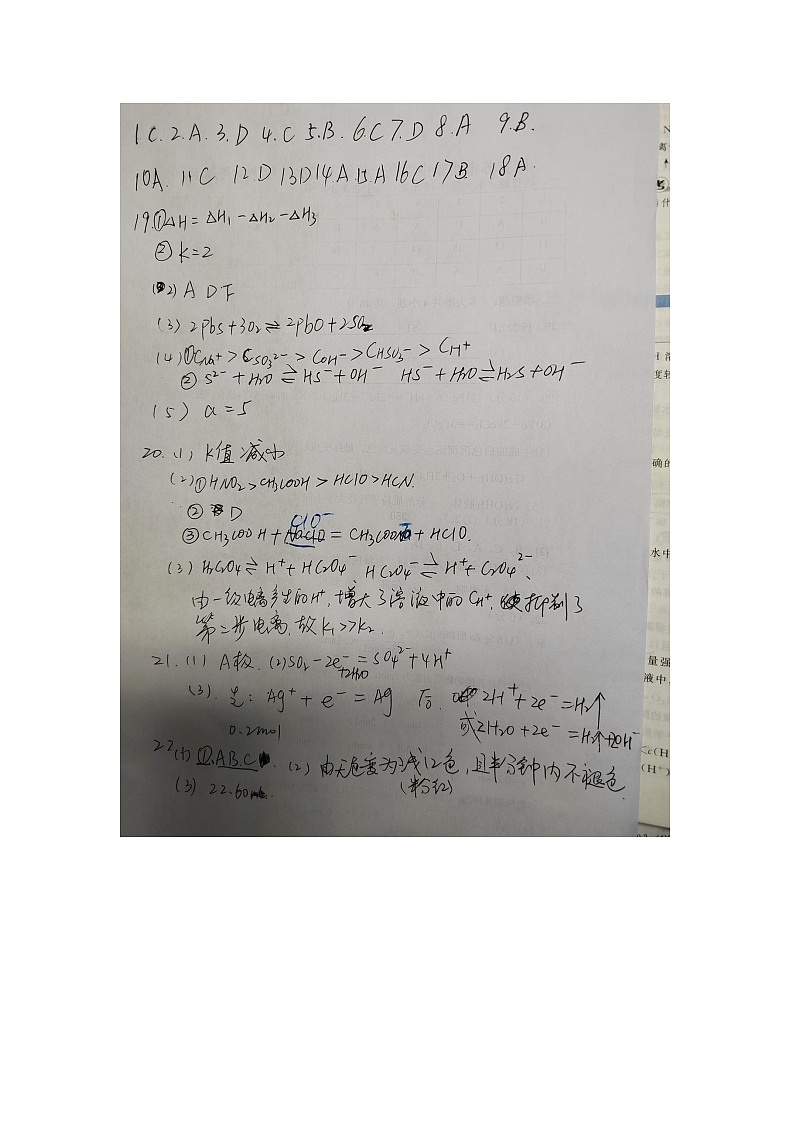 1.C. 2.A. 3.D 4.C 5.B. 6.C 7.D 8.A 9.B.
10A. 11 C 12.D 13D 14A 15A 16C 17B. 18A.
19.①△H= △H₁-△H₂-△H₃
② K=2
(2) A D F
(3) 2PbS+3O₂⇌2PbO+2SO₂
(4)①CNa⁺>CSO₃²⁻>COH⁻>CHSO₃⁻>CH⁺
② S²⁻+H₂O⇌HS⁻+OH⁻ HS⁻+H₂O⇌H₂S+OH⁻
(5) a=5
20.(1) K值减小
(2)①HNO₂>CH₃COOH>HClO>HCN.
② D
ClO⁻
③CH₃COOH+NaClO=CH₃COO⁻+HClO.
(3) H₂C₂O₄⇌H⁺+HC₂O₄⁻ HC₂O₄⁻⇌H⁺+C₂O₄²⁻、
由一级电离产生的H⁺,增大了溶液中的CH⁺,抑制了
第二步电离,故K₁>>K₂.
21.(1) A极.(2)SO₂-2e⁻+2H₂O=SO₄²⁻+4H⁺
(3).先:Ag⁺+e⁻=Ag 后. 2H⁺+2e⁻=H₂↑
或2H₂O+2e⁻=H₂↑+2OH⁻
0.2mol
22(1)①.A.B.C. (2) 由无色变为浅红色,且半分钟内不褪色.
(粉红)
(3) 22.60mL